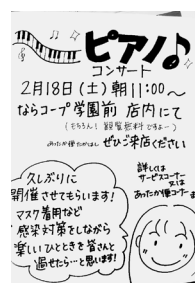 ピアノ♪
コンサート
2月18日(土)朝11:00〜
ならコープ学園前 店内にて
(もちろん! 観覧無料ですよー)
ぜひご来店ください
久しぶりに
開催させてもらいます!
マスク着用など
感染対策をしながら
楽しいひとときを皆さんと
過せたら…と思います!
詳しくは
サービスコーナー
又は
あったか惣コーナー